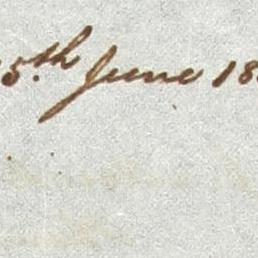 5.th June 18